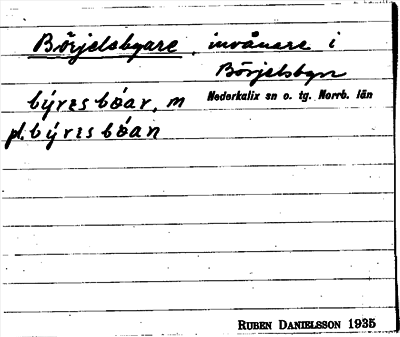 Börjelsbyare, invånare i
Börjelsbyn
Nederkalix sn o. tg. Norrb. län
býrɛsbøar, m
pl. býrɛsbøan
RUBEN DANIELSSON 1935